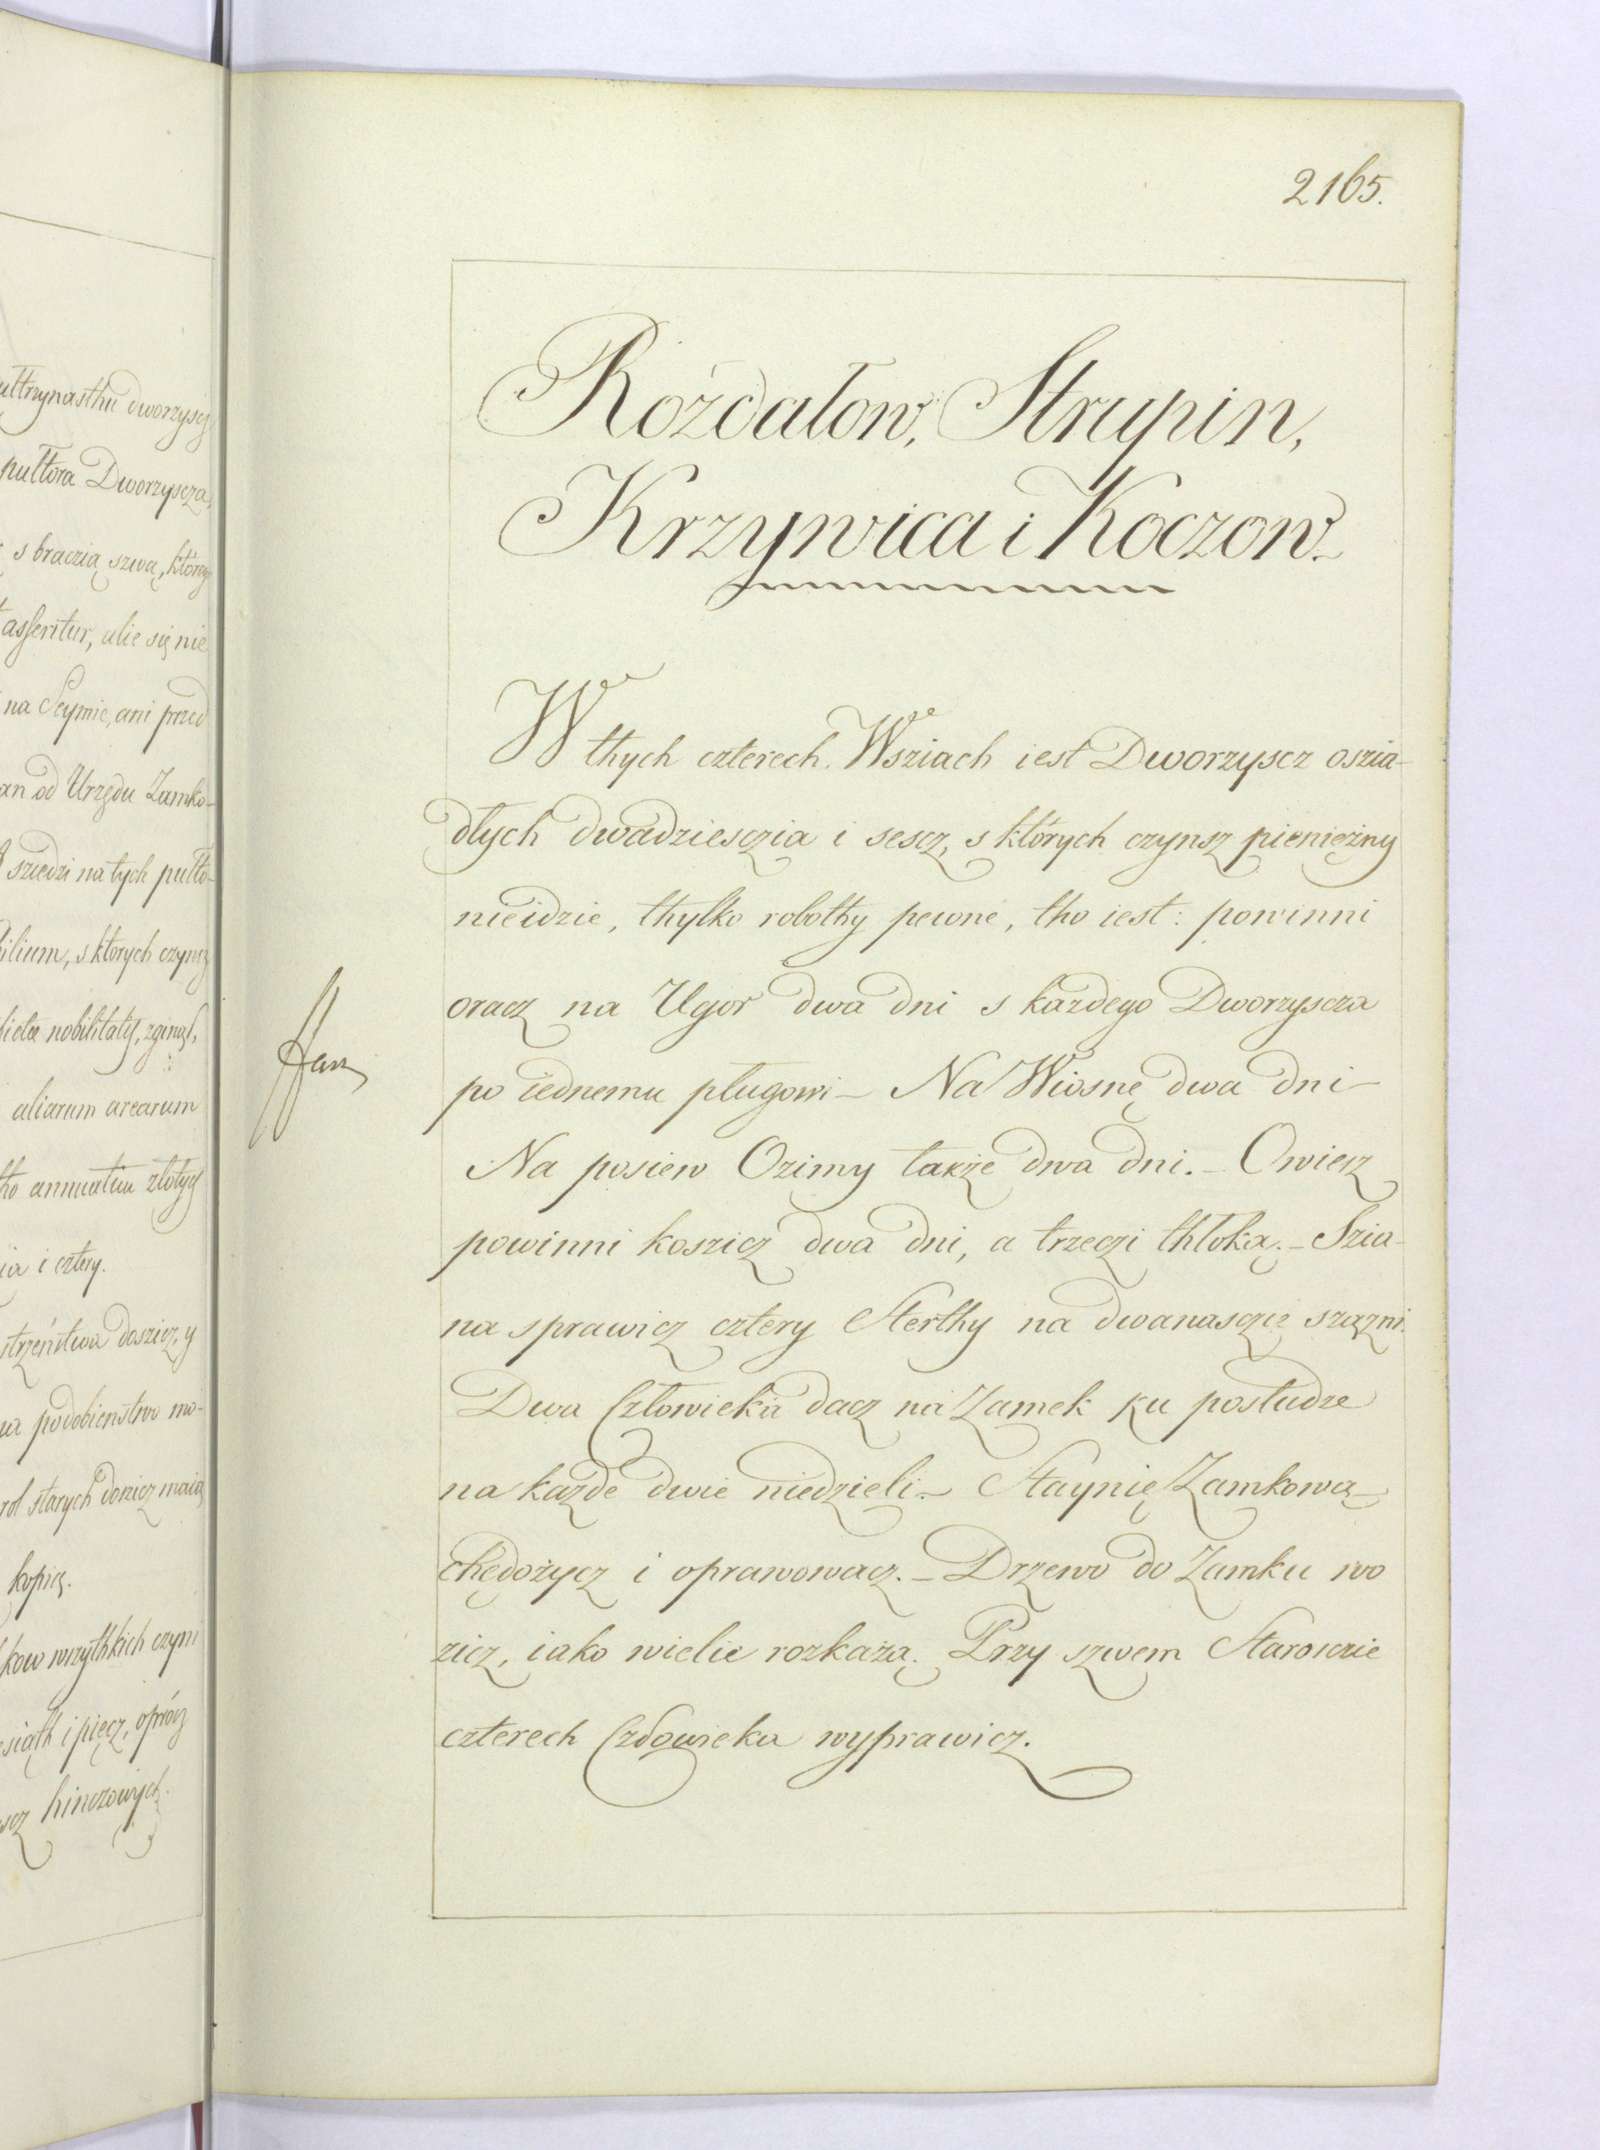 ultrzynasthu dworzyscz
pułtora Dworzyscza,
s braczią szwą, któreg
asseritur, alie się nie
na Seymie, ani przed
an od Urzędu Zamko-
sziedzi na tych pułto-
bilium, s których czynsz
nobilitaty, zginął,
aliarum arearum
annuatim złotych
ia i cztery.
strzeństwa doszicz, y
na podobieństwo mo-
rol starych donicz maią
kopicz.
kow wszythkich czyni
esiąth i pięcz, oprócz
scz hinczowych.
2165.
Rożdałow, Strupin,
Krzywica i Koczow.
W thych czterech Wsziach iest Dworzyscz oszia-
dłych dwadziesczia i sescz, s których czynsz pieniężny
nieidzie, thylko robothy pewne, tho iest: powinni
oracz na Ugor dwa dni s każdego Dworzyscza
po iednemu pługowi – Na Wiosnę dwa dni –
Na posiew Ozimy także dwa dni. – Owiesz
powinni koszicz dwa dni, a trzeczi thłoką. – Szia-
na sprawicz cztery Sterthy na dwanasczie szązni.
Dwa Człowieka dacz na Zamek ku posłudze
na każde dwie niedzieli. – Staynię Zamkową
chędożycz i oprawowacz. – Drzewo do Zamku wo
zicz, iako wielie rozkażą. Przy szwem Starosczie
czterech Człowieka wyprawicz.